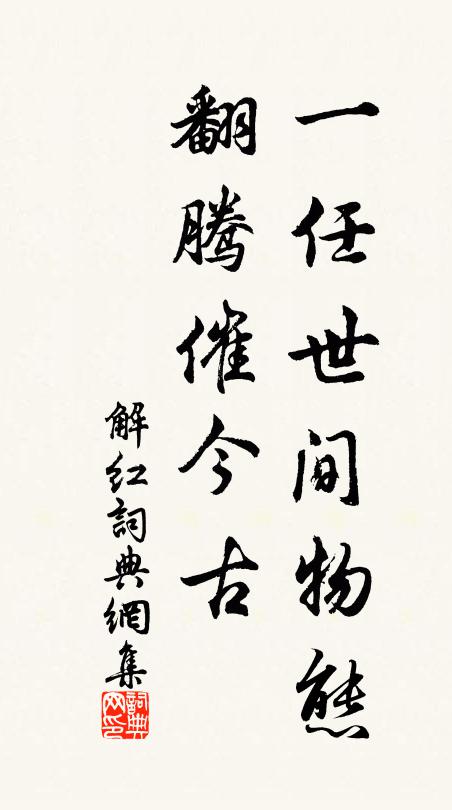 一任世间物態
翻腾催今古
解红詞典網集
詞典网印